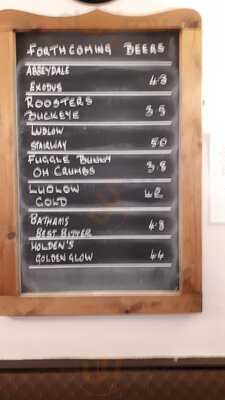 FORTHCOMING BEERS
ABBEYDALE
EXODUS 4.3
ROOSTERS
BUCKEYE 3.5
LUDLOW
STAIRWAY 5.0
FUGGLE BUNNY
OH CRUMBS 3.8
LUDLOW
GOLD 4.2
BATHAMS
BEST BITTER 4.3
HOLDEN'S
GOLDEN GLOW 4.4